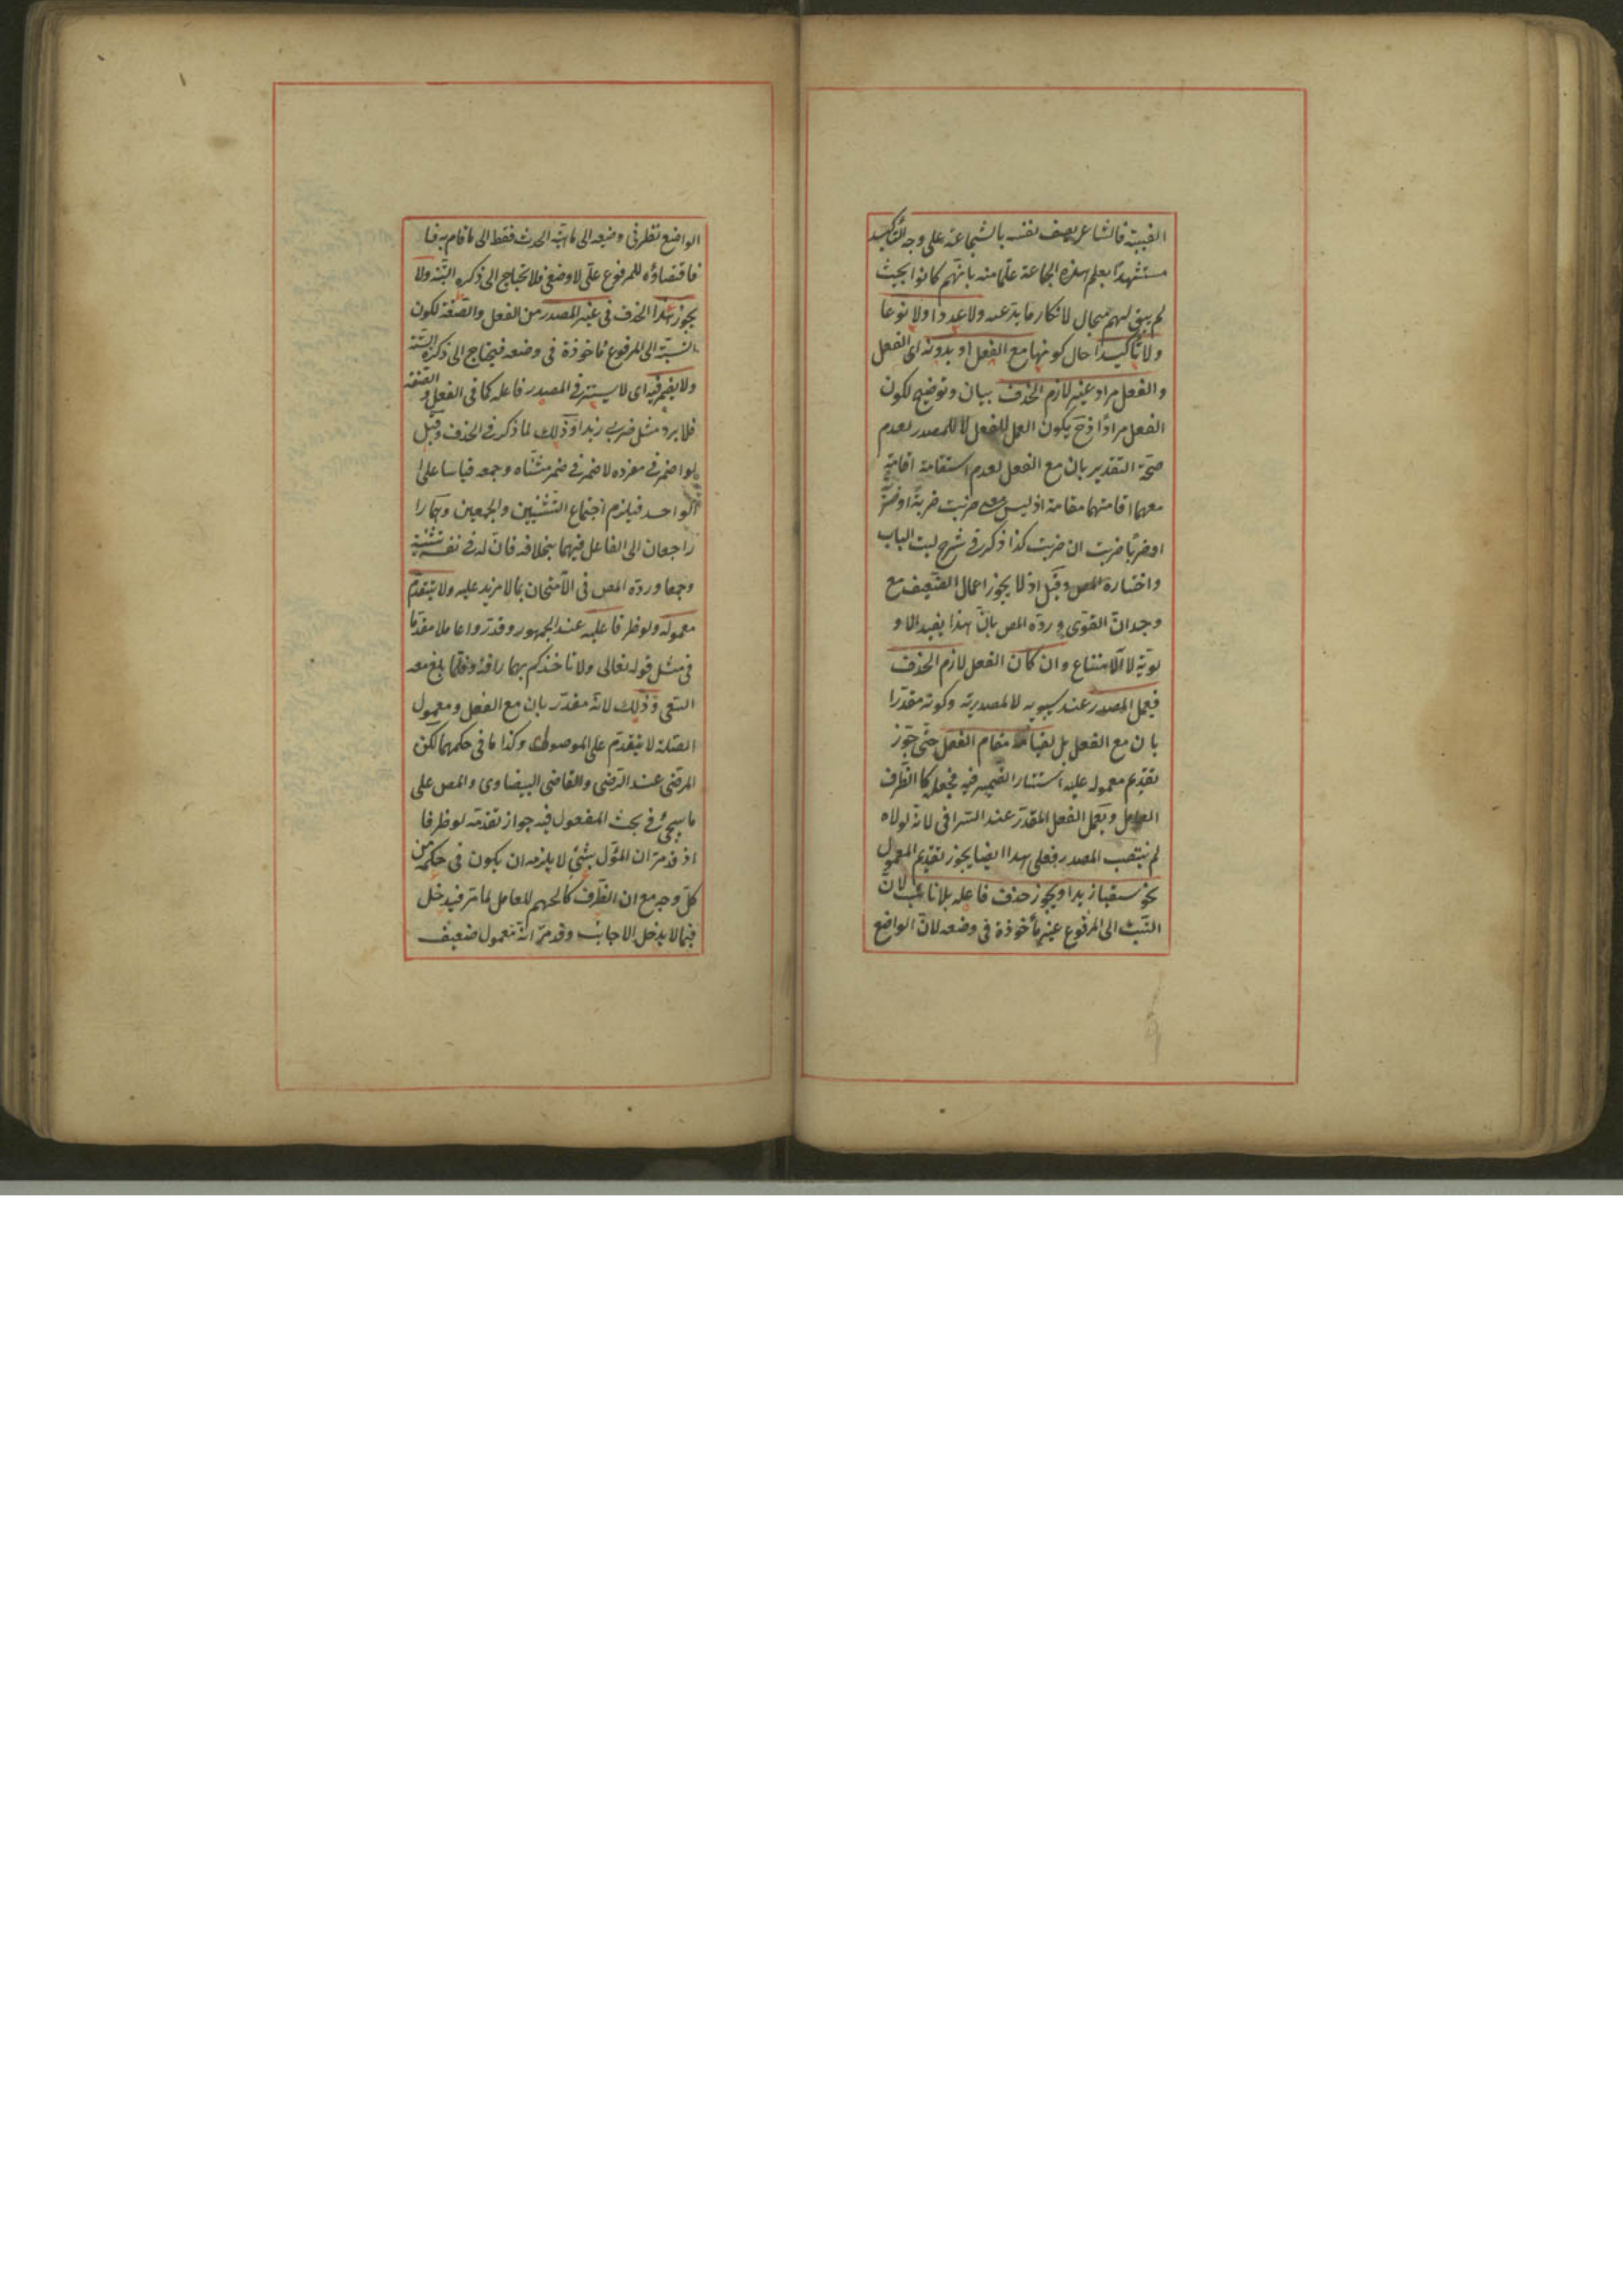 الغيبية فالشاعر يصف نفسه بالشجاعة على وجه التأكيد
مستشهدا بعلم هذه الجماعة علما منه بانهم كانوا بحيث
لم يبق لهم مجال لانكار ما يدعيه ولا عددا ولا نوعا
ولا تأكيدا حال كونها مع الفعل او بدونه اى الفعل
والفعل مراد غير لازم الحذف بيان وتوضيح لكون
الفعل مرادا اذ ح يكون العمل للفعل لا للمصدر لعدم
صحة التقدير بان مع الفعل لعدم استقامة اقامة
معهما اقامتهما مقامه اذ ليس معنى ضربت ضربة او ضربتين
او ضربا ضربت ان ضربت كذا ذكر فى شرح لب الباب
واختاره المص وقيل اذ لا يجوز اعمال الضعيف مع
وجدان القوى ورده المص بان هذا يفيد الاو
لوية لا الامتناع وان كان الفعل لازم الحذف
فيعمل المصدر عند سيبويه لا لمصدريته وكونه مقدرا
بان مع الفعل بل لقيامه مقام الفعل حتى جوز
تقديم معموله عليه استتار الضمير فيه فجعله كالظرف
العامل ويعمل الفعل المقدر عند السيرافى لانه لولاه
لم ينتصب المصدر فعلى هذا ايضا يجوز تقديم المعمول
نحو سقيا زيدا ويجوز حذف فاعله بلا نائب لان
النسبة الى المرفوع غير مأخوذة فى وضعه لان الواضع
الواضع نظر فى وضعه الى ماهية الحدث فقط الى ما قام به
فاقتضاؤه للمرفوع عقلى لا وضعى فلا يحتاج الى ذكره البتة ولا
يجوز هذا الحذف فى غير المصدر من الفعل والصفة لكون
النسبة الى المرفوع مأخوذة فى وضعه فيحتاج الى ذكره البتة
ولا يضمر فيه اى لا يستتر فى المصدر فاعله كما فى الفعل والصفة
فلا يرد مثل ضربى زيدا وذلك لما ذكر فى الحذف وقيل
لو اضمر فى مفرده لاضمر فى مثناه وجمعه قياسا على
الواحد فيلزم اجتماع التثنيتين والجمعين وهما را
راجعان الى الفاعل فيهما بخلافه فان له فى نفسه تثنية
وجمعا ورده المص فى الامتحان بما لا مزيد عليه ولا يتقدم
معموله ولو ظرفا عليه عند الجمهور وقدروا عاملا مقدما
فى مثل قوله تعالى ولا تأخذكم بهما رأفة وفلما بلغ معه
السعى وذلك لانه مقدر بان مع الفعل ومعمول
الصلة لا يتقدم على الموصول وكذا ما فى حكمهما لكن
المرضى عند الرضى والقاضى البيضاوى والمص على
ما سيجئ فى بحث المفعول فيه جواز تقدمه لو ظرفا
اذ قد مر ان المؤل بشئ لا يلزمه ان يكون فى حكمه من
كل وجه مع ان الظرف كالمحرم للعامل لما مر فيدخل
فيما لا يدخل الاجانب وقد مر انه معمول ضعيف